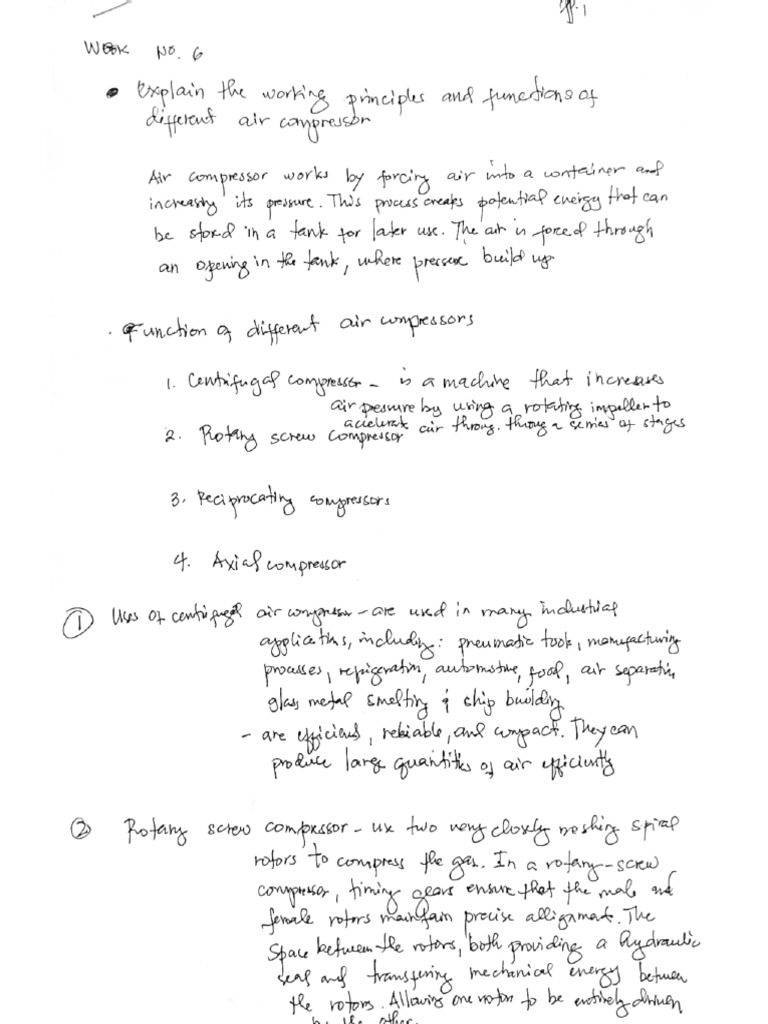 pp. 1
Week No. 6
• Explain the working principles and functions of
different air compressor
Air compressor works by forcing air into a container and
increasing its pressure. This process creates potential energy that can
be stored in a tank for later use. The air is forced through
an opening in the tank, where pressure build up
. Function of different air compressors
1. Centrifugal compressor - is a machine that increases
air pressure by using a rotating impeller to
accelerate air throug. through a series of stages
2. Rotary screw compressor
3. Reciprocating compressors
4. Axial compressor
① Uses of centrifugal air compressor - are used in many industrial
applications, including: pneumatic tools, manufacturing
processes, refrigeration, automotive, food, air separation
glass metal smelting & chip building
- are efficient, reliable, and compact. They can
produce large quantities of air efficiently
② Rotary screw compressor - use two very closely meshing spiral
rotors to compress the gas. In a rotary-screw
compressor, timing gears ensure that the male and
female rotors maintain precise allignment. The
Space between the rotors, both providing a hydraulic
seal and transfering mechanical energy between
the rotors. Allowing one rotor to be entirely driven
by the other.